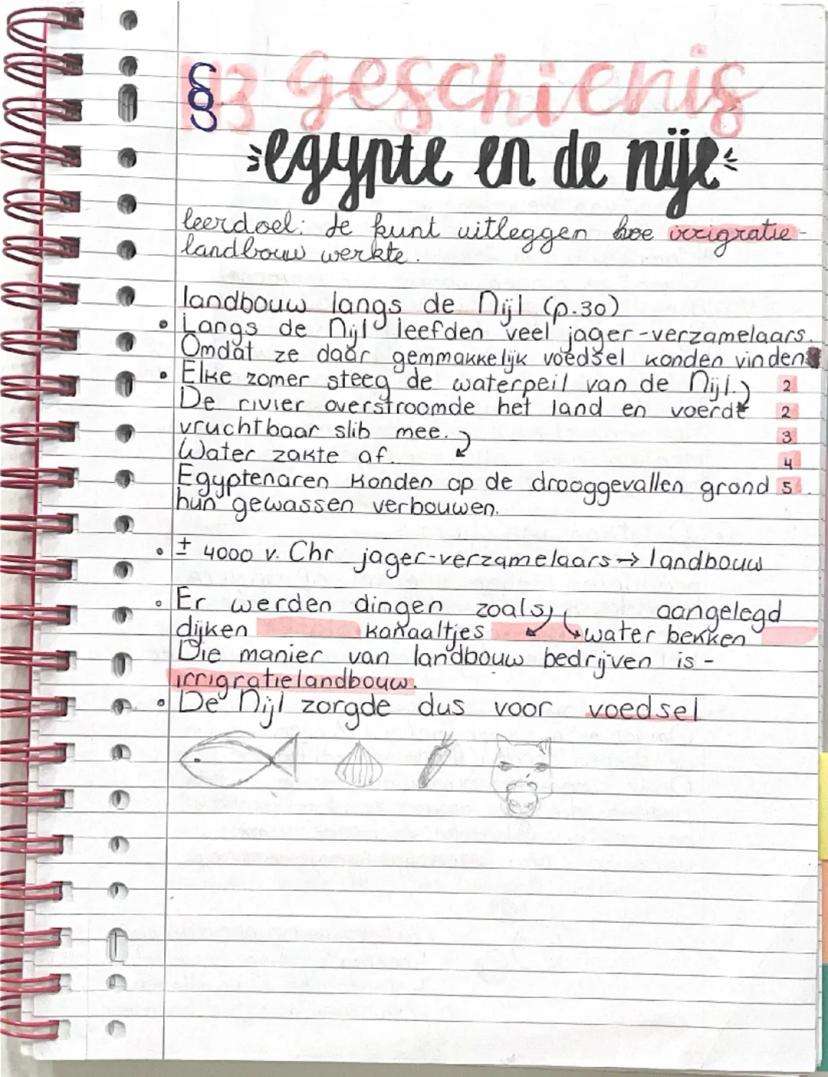 § 3 geschienis
egypte en de nijl
leerdoel: Je kunt uitleggen hoe irrigratie-
landbouw werkte.
landbouw langs de Nijl (p.30)
• Langs de Nijl leefden veel jager-verzamelaars.
Omdat ze daar gemmakkelijk voedsel konden vinden
• Elke zomer steeg de waterpeil van de Nijl. 2
De rivier overstroomde het land en voerde 2
vruchtbaar slib mee. 3
Water zakte af. 4
Egyptenaren konden op de drooggevallen grond 5
hun gewassen verbouwen.
• ± 4000 v. Chr jager-verzamelaars → landbouw
• Er werden dingen zoals aangelegd
dijken kanaaltjes water bekken
Die manier van landbouw bedrijven is -
irrigratielandbouw.
• De Nijl zorgde dus voor voedsel